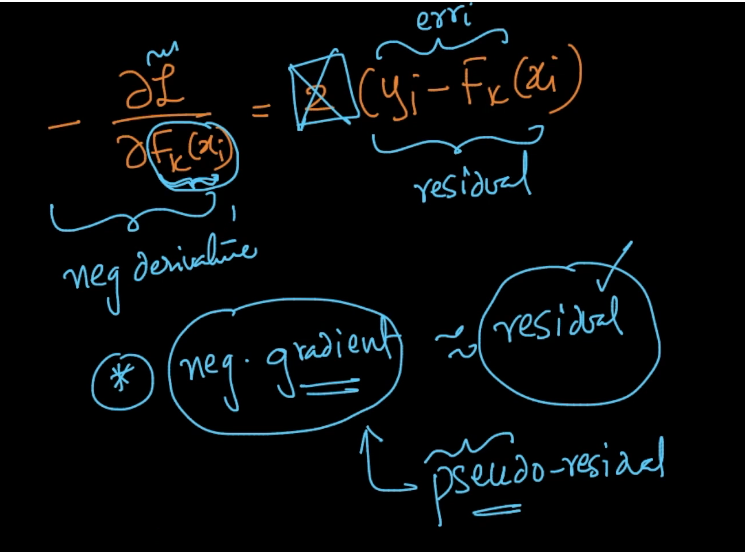 erri
- ∂L / ∂F_k(x_i) = 2 (y_i - F_k(x_i))
residual
neg derivative
* neg. gradient ≈ residual ✓
pseudo-residual